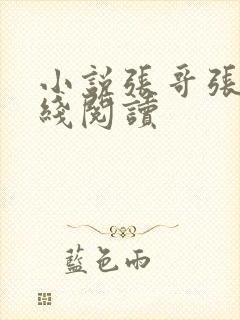 小説張哥張
綫閱讀
藍色雨